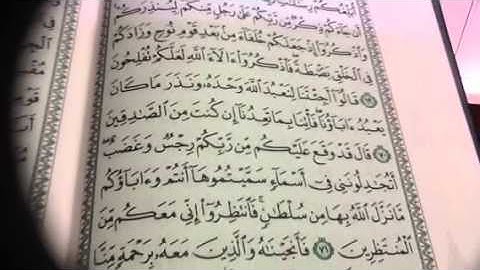 أُبَلِّغُكُمْ
أَن جَآءَكُمْ ذِكْرٌ مِّن رَّبِّكُمْ عَلَىٰ رَجُلٍ مِّنكُمْ لِيُنذِرَكُمْ
وَٱذْكُرُوٓا۟ إِذْ جَعَلَكُمْ خُلَفَآءَ مِنۢ بَعْدِ قَوْمِ نُوحٍ وَزَادَكُمْ
فِى ٱلْخَلْقِ بَصْۜطَةً فَٱذْكُرُوٓا۟ ءَالَآءَ ٱللَّهِ لَعَلَّكُمْ تُفْلِحُونَ
٦٩ قَالُوٓا۟ أَجِئْتَنَا لِنَعْبُدَ ٱللَّهَ وَحْدَهُۥ وَنَذَرَ مَا كَانَ
يَعْبُدُ ءَابَآؤُنَا فَأْتِنَا بِمَا تَعِدُنَآ إِن كُنتَ مِنَ ٱلصَّٰدِقِينَ
٧٠ قَالَ قَدْ وَقَعَ عَلَيْكُم مِّن رَّبِّكُمْ رِجْسٌ وَغَضَبٌ
أَتُجَٰدِلُونَنِى فِىٓ أَسْمَآءٍ سَمَّيْتُمُوهَآ أَنتُمْ وَءَابَآؤُكُم
مَّا نَزَّلَ ٱللَّهُ بِهَا مِن سُلْطَٰنٍ فَٱنتَظِرُوٓا۟ إِنِّى مَعَكُم مِّنَ
ٱلْمُنتَظِرِينَ ٧١ فَأَنجَيْنَٰهُ وَٱلَّذِينَ مَعَهُۥ بِرَحْمَةٍ مِّنَّا